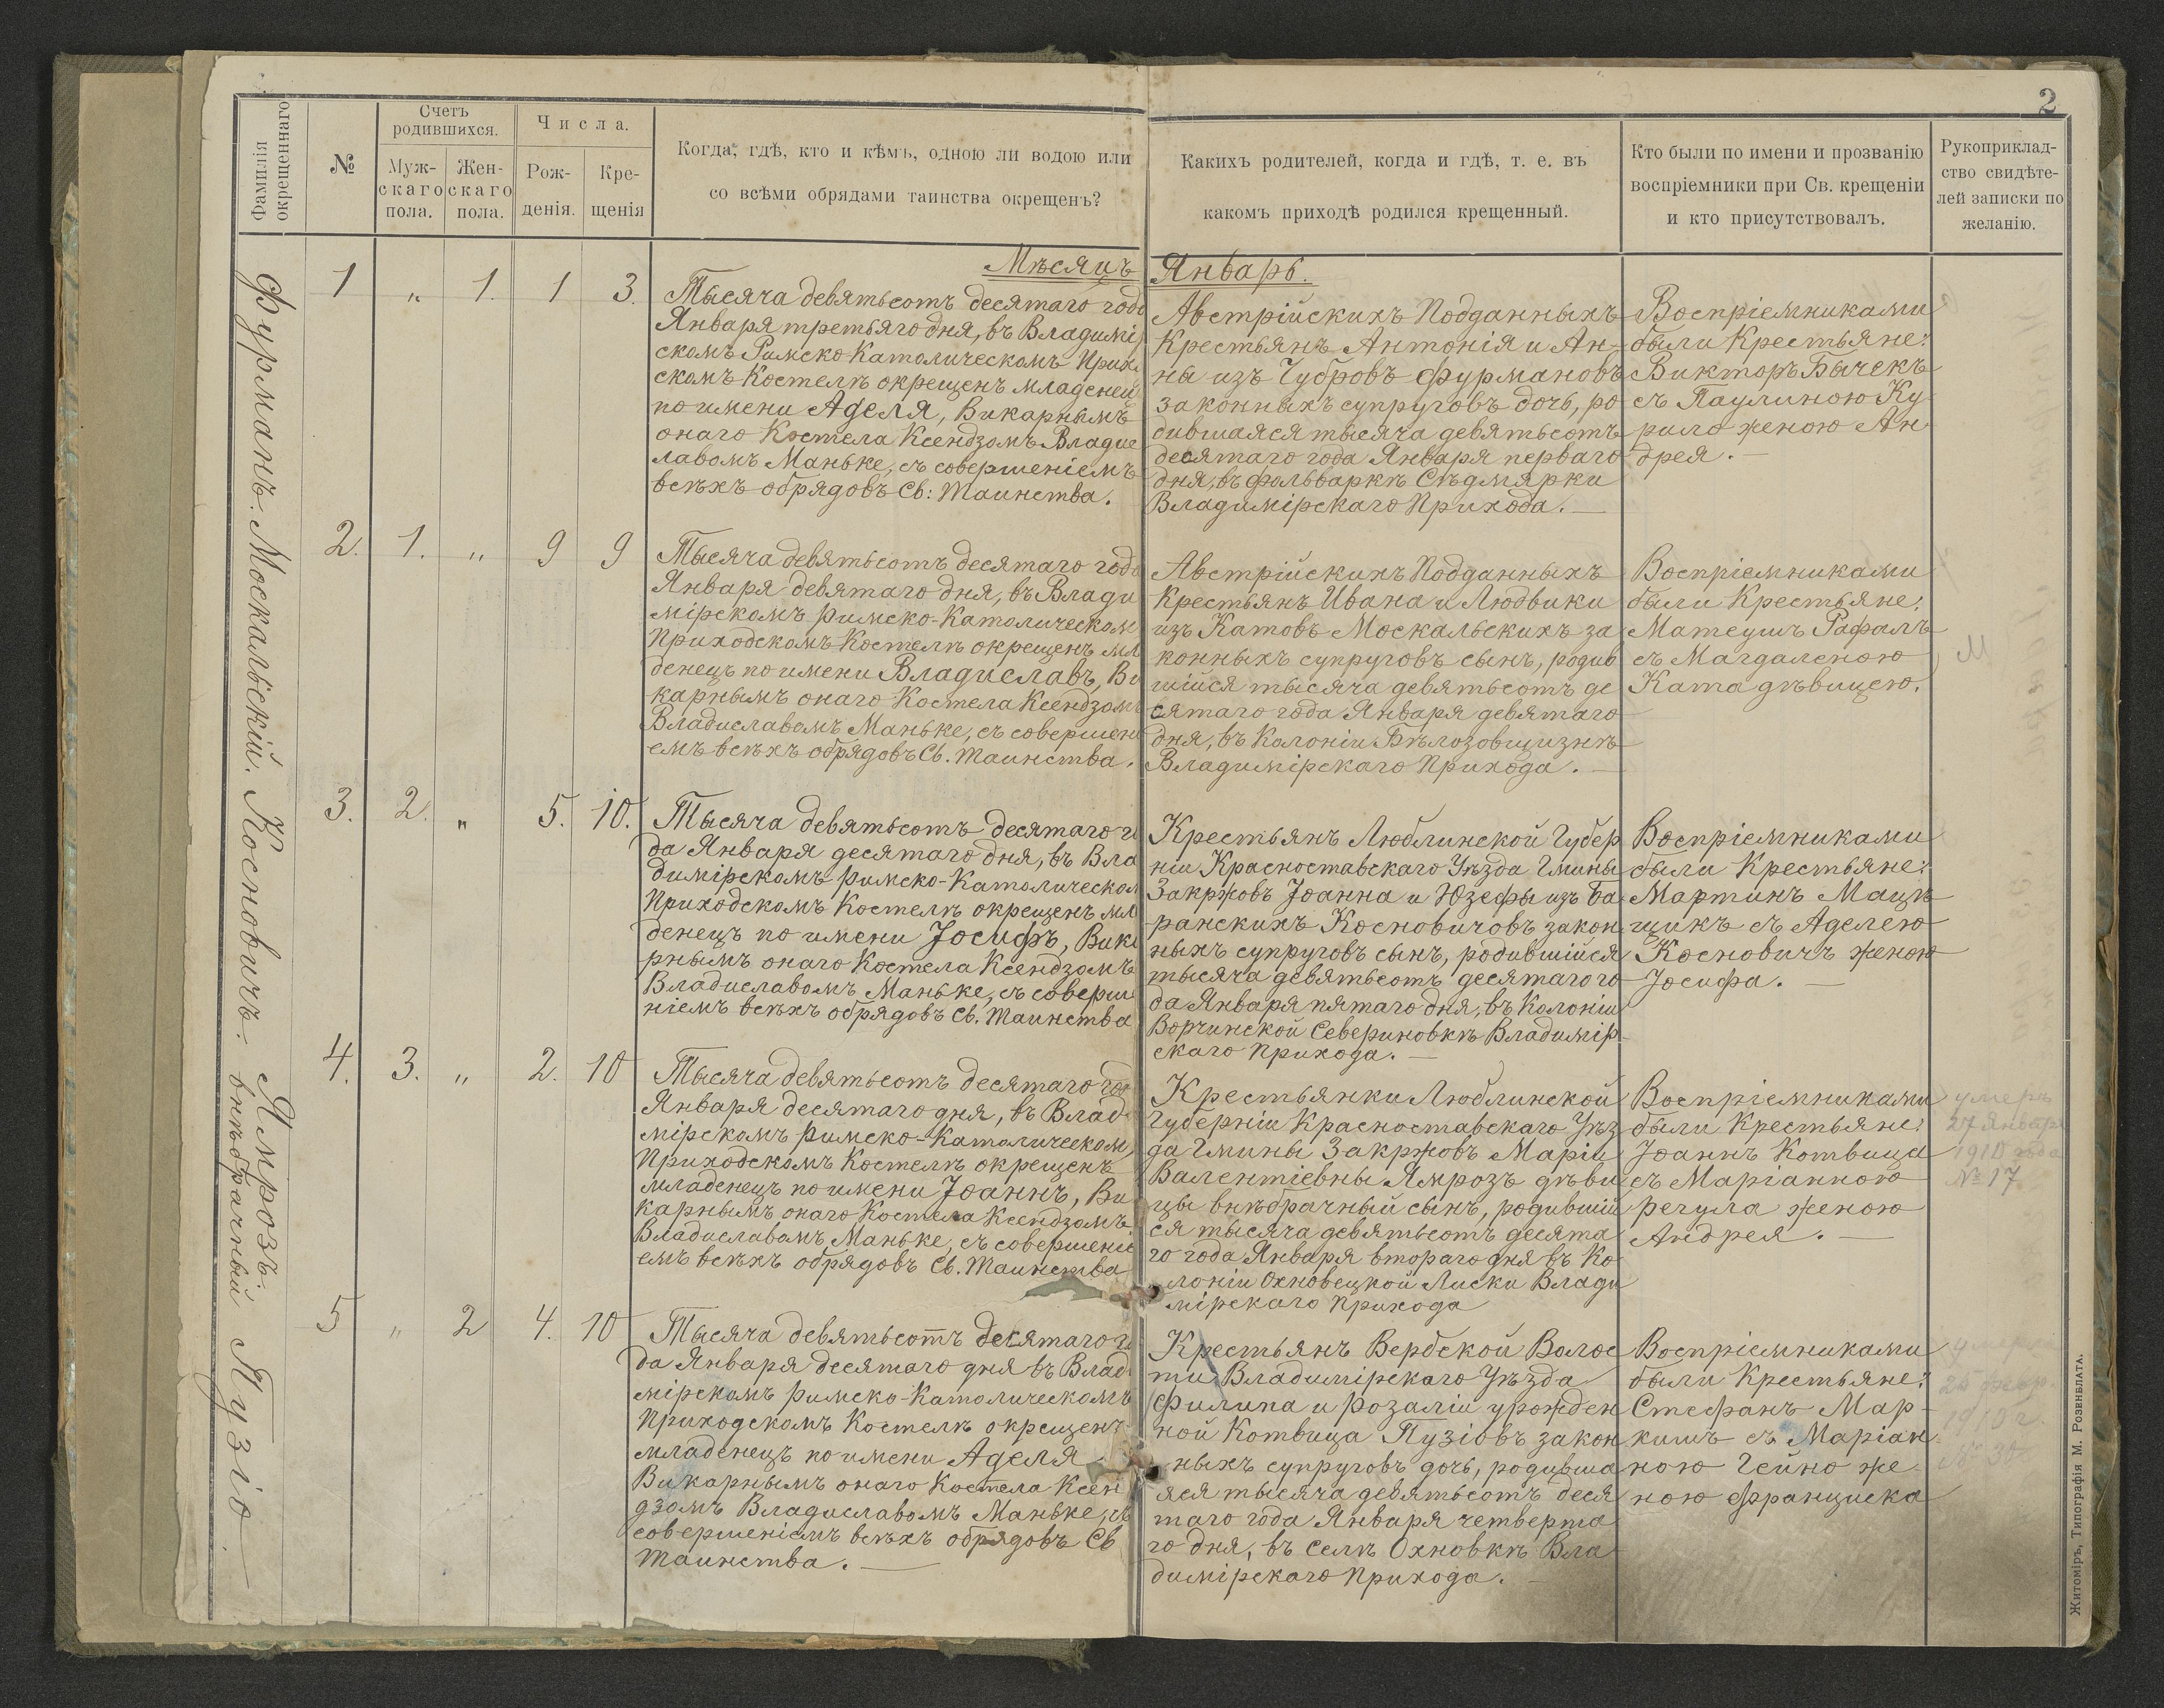 2
Фамилія
окрещеннаго
№
Счетъ
родившихся.
Муж-
скаго
пола.
Жен-
скаго
пола.
Числа.
Рож-
денія.
Кре-
щенія
Когда, гдѣ, кто и кѣмъ, одною ли водою или
со всѣми обрядами таинства окрещенъ?
Какихъ родителей, когда и гдѣ, т. е. въ
какомъ приходѣ родился крещенный.
Кто были по имени и прозванію
воспріемники при Св. крещеніи
и кто присутствовалъ.
Рукоприклад-
ство свидѣте-
лей записки по
желанію.
Мѣсяцъ Январь.
Фурманъ.
1 " 1. 1 3.
Тысяча девятьсотъ десятаго года
Января третьяго дня, въ Владимір
скомъ Римско-Католическомъ Прихо
скомъ Костелѣ окрещенъ младенец
по имени Аделя, Викарнымъ
онаго Костела Ксендзомъ Владис
лавомъ Маньке, съ совершеніемъ
всѣхъ обрядовъ Св: Таинства.
Австрійскихъ Подданныхъ
Крестьянъ Антонія и Ан-
ны изъ Чубровъ Фурмановъ
законныхъ супруговъ дочь, ро
дившаяся тысяча девятьсотъ
десятаго года Января перваго
дня, въ фольваркѣ Сѣдмярки
Владимірскаго Прихода.
Воспріемниками
были Крестьяне:
Викторъ Бычекъ
съ Паулиною Ку
рило женою Ан
дрея.
Москальскій.
2. 1. " 9 9
Тысяча девятьсотъ десятаго года
Января девятаго дня, въ Влади
мірскомъ Римско-Католическом
Приходскомъ Костелѣ окрещенъ мл
денецъ по имени Владиславъ, Ви
карнымъ онаго Костела Ксендзомъ
Владиславомъ Маньке, съ совершені
емъ всѣхъ обрядовъ Св. Таинства.
Австрійскихъ Подданныхъ
Крестьянъ Ивана и Людвики
изъ Катовъ Москальскихъ за
конныхъ супруговъ сынъ, родив
шійся тысяча девятьсотъ де
сятаго года Января девятаго
дня, въ Колоніи Бѣлозовщизнѣ
Владимірскаго Прихода.
Воспріемниками
были Крестьяне:
Матеушъ Рафалъ
съ Магдаленою
Ката дѣвицею.
М
Косновичъ.
3. 2. " 5. 10.
Тысяча девятьсотъ десятаго го
да Января десятаго дня, въ Вла
димірскомъ Римско-Католическом
Приходскомъ Костелѣ окрещенъ мл
денецъ по имени Іосифъ, Вика
рнымъ онаго Костела Ксендзомъ
Владиславомъ Маньке, съ соверше
ніемъ всѣхъ обрядовъ Св. Таинства
Крестьянъ Люблинской Губер
ніи Красноставскаго Уѣзда Гмины
Закржовъ Іоанна и Юзефы изъ Ба
ранскихъ Косновичовъ закон
ныхъ супруговъ сынъ, родившійся
тысяча девятьсотъ десятаго го
да Января пятаго дня, въ Колоніи
Ворчинской Севериновкѣ Владимір
скаго Прихода.
Воспріемниками
были Крестьяне:
Мартинъ Мацѣ
щикъ съ Аделею
Косновичъ женою
Іосифа.
Ямрозъ.
внѣбрачный
4. 3. " 2. 10
Тысяча девятьсотъ десятаго год
Января десятаго дня, въ Влад
мірскомъ Римско-Католическом
Приходскомъ Костелѣ окрещенъ
младенецъ по имени Іоаннъ, Ви
карнымъ онаго Костела Ксендзомъ
Владиславомъ Маньке, съ совершені
емъ всѣхъ обрядовъ Св. Таинства
Крестьянки Люблинской
Губерніи Красноставскаго Уѣз
да Гмины Закржовъ Маріи
Валентіевны Ямрозъ дѣви
цы внѣбрачный сынъ, родившій
ся тысяча девятьсотъ десята
го года Января второго дня въ Ко
лоніи Охновецкой Лиски Влади
мірскаго Прихода
Воспріемниками
были Крестьяне:
Іоаннъ Котвица
съ Маріанною
Регула женою
Андрея.
умеръ
27 Января
1910 года
№ 17
Пузіо
5 " 2 4. 10
Тысяча девятьсотъ десятаго го
да Января десятаго дня въ Влад
мірскомъ Римско-Католическомъ
Приходскомъ Костелѣ окрещенъ
младенецъ по имени Аделя
Викарнымъ онаго Костела Ксен
дзомъ Владиславомъ Маньке, съ
совершеніемъ всѣхъ обрядовъ Св
Таинства.
Крестьянъ Вербской Волос
ти Владимірскаго Уѣзда
Филипа и Розаліи урожден
ной Котвица Пузіовъ закон
ныхъ супруговъ дочь, родивша
яся тысяча девятьсотъ деся
таго года Января четверта
го дня, въ селѣ Охновкѣ Вла
димірскаго Прихода.
Воспріемниками
были Крестьяне:
Стефанъ Мар-
кишъ съ Маріан
ною Гейно же
ною Франциска
Житоміръ, Типографія М. Розенблата.